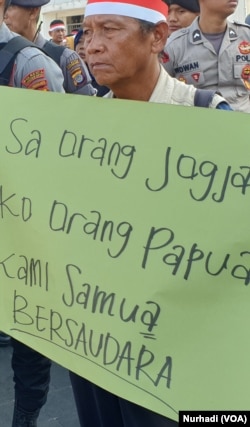 WIDWAN
POLISI
Sa orang Jogja
Ko orang Papua
Kami Samua
BERSAUDARA
Nurhadi (VOA)